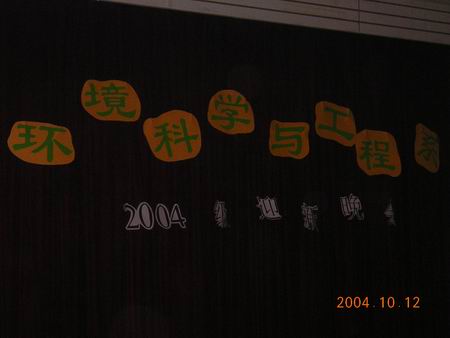 环境科学与工程系
2004 级迎新晚会
2004.10.12